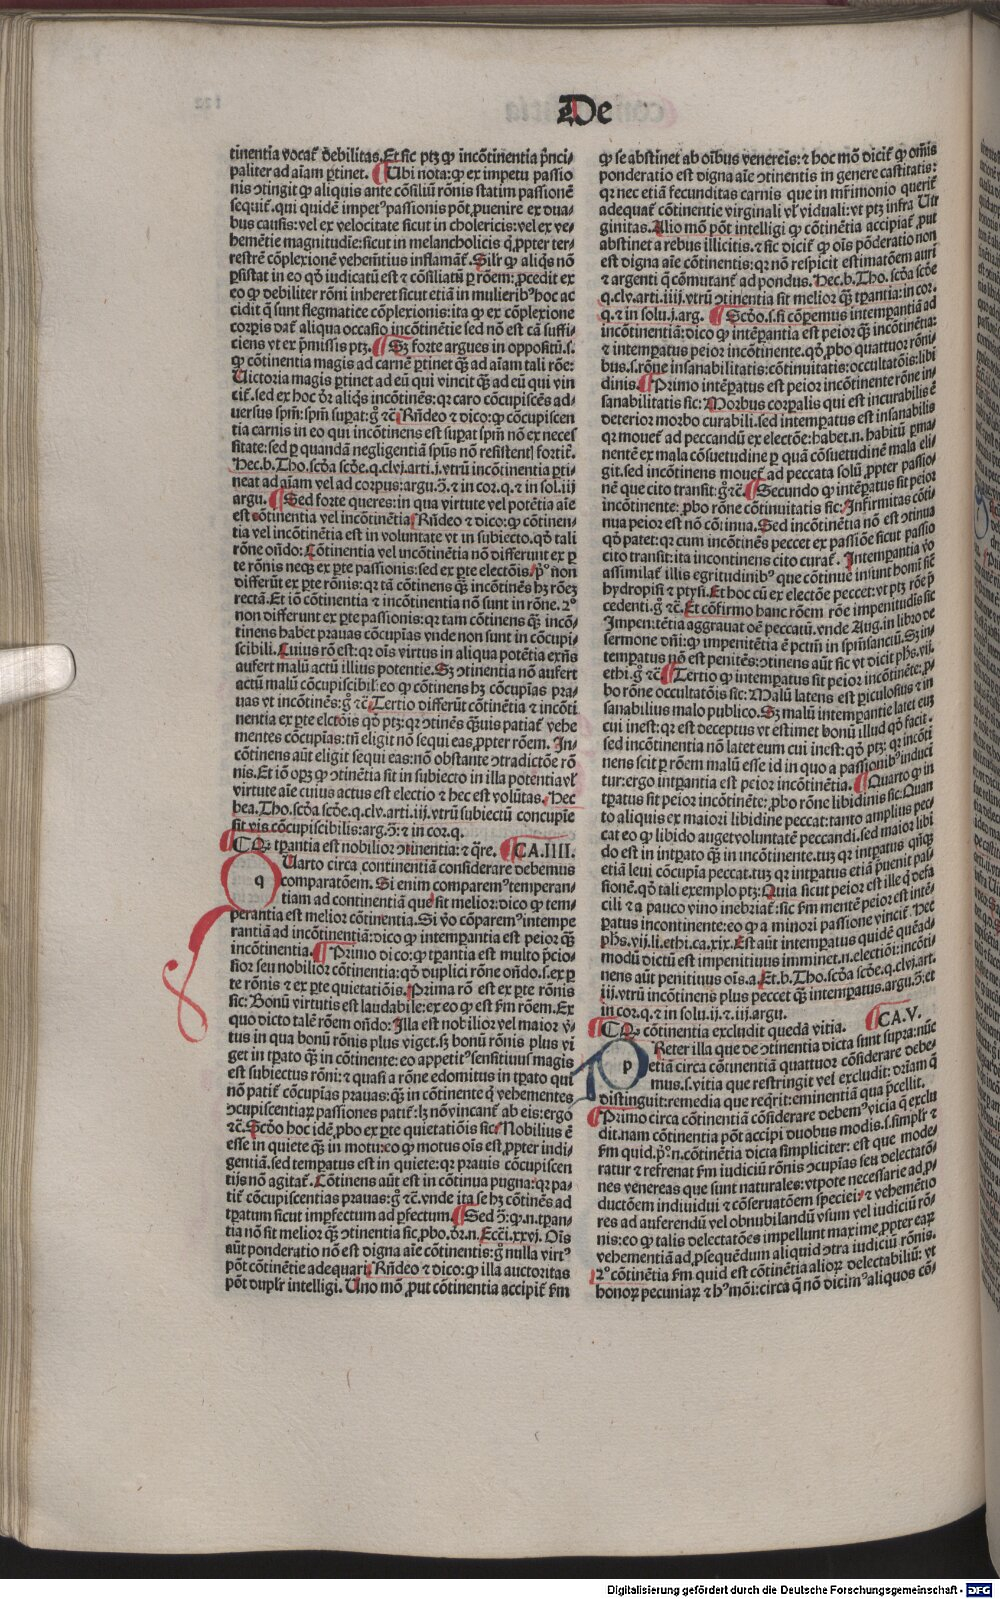 De
tinentia vocat᷑ debilitas. Et sic ptꝫ ꝙ incõtinentia prĩci-
paliter ad aĩam ꝑtinet. Ubi nota: ꝙ ex impetu passio
nis ↄtingit ꝙ aliquis ante cõsiliũ rõnis statim passionẽ
sequit᷑. qui quidẽ impetꝰ passionis põt ꝓuenire ex dua-
bus causis: vel ex velocitate sicut in cholericis: vel ex ve-
hemẽtie magnitudĩe: sicut in melancholicis q̃ ꝓpter ter-
restrẽ cõplexionẽ vehemẽtius inflamãt᷑. Silr ꝙ aliqͥs nõ
ꝑsistat in eo qð iudicatũ est ⁊ cõsiliatũ ꝑ rõem: ꝓcedit ex
eo ꝙ debiliter rõni inheret sicut etiã in mulieribꝰ hoc ac
cidit q̃ sunt flegmatice cõplexionis: ita ꝙ ex cõplexione
corꝑis dat᷑ aliqua occasio incõtinẽtie sed nõ est cã suffi-
ciens vt ex ꝑmissis ptꝫ. Sꝫ forte argues in oppositũ. s.
ꝙ cõtinentia magis ad carnẽ ꝑtinet q̃ꝫ ad aĩam tali rõe:
Uictoria magis ꝑtinet ad eũ qui vincit q̃ꝫ ad eũ qui vin
cit᷑. sed ex hoc dr̃ aliqͥs incõtinẽs: ꝙ caro cõcupiscẽs ad-
uersus spm̃: spm̃ suꝑat: gͦ ⁊c̃ Rñdeo ⁊ dico: ꝙ cõcupiscen
tia carnis in eo qui incõtinens est suꝑat spm̃ nõ ex neces
sitate: sed ꝑ quandã negligentiã spũs nõ resistent᷑ fortit᷑.
Hec. b. Tho. scða scðe. q. clvj. arti. j. vtrũ incõtinentia ꝑti-
neat ad aĩam vel ad corpus: argu. 3. ⁊ in cor. q. ⁊ in sol. iij
argu. Sed forte queres: in qua virtute vel potẽtia aĩe
est cõtinentia vel incõtinẽtia Rñdeo ⁊ dico: ꝙ cõtinen-
tia vel incõtinẽtia est in voluntate vt in subiecto. qð tali
rõne oñdo: Cõtinentia vel incõtinẽtia nõ differunt ex ꝑ
te rõnis neqꝫ ex ꝑte passionis: sed ex ꝑte electõis. pͦ non
differũt ex ꝑte rõnis: qꝛ tã cõtinens q̃ꝫ incõtinẽs hꝫ rõeꝫ
rectã. Et iõ cõtinentia ⁊ incõtinentia nõ sunt in rõne. 2ͦ
non differunt ex ꝑte passionis: qꝛ tam cõtinens q̃ꝫ incõ-
tinens habet prauas cõcupĩas vnde non sunt in cõcupi-
scibili. Cuius rõ est: qꝛ oĩs virtus in aliqua potẽtia exñs
aufert malũ actũ illius potentie. Sꝫ ↄtinentia nõ aufert
actũ malũ cõcupiscibil: eo ꝙ cõtinens hꝫ cõcupĩas pra-
uas vt incõtinẽs: gͦ ⁊c̃ Tertio differũt cõtinẽtia ⁊ incõti
nentia ex ꝑte elctõis qð ptꝫ: qꝛ ↄtinẽs q̃uis patiat᷑ vehe
mentes cõcupĩas: tñ eligit nõ sequi eas ꝓpter rõem. In-
cõtinens aũt eligit sequi eas: nõ obstante ↄtradictõe rõ
nis. Et iõ opꝫ ꝙ ↄtinẽtia sit in subiecto in illa potentia vl̃
virtute aĩe cuius actus est electio ⁊ hec est volũtas. Hec
bea. Tho. scða scðe. q. clv. arti. iij. vtrũ subiectũ concupie
sit vis cõcupiscibilis: arg. 3. ⁊ in cor. q.
Ꝙ tꝑantia est nobilior ↄtinentia: ⁊ q̃re. CA. IIII.
q Uarto circa continentiã considerare debemus
comparatõem. Si enim comparemꝰ temperan-
tiam ad continentiã que sit melior: dico ꝙ tem-
perantia est melior cõtinentia. Si v̾o cõparemꝰ intempe
rantiã ad incõtinentiã: dico ꝙ intemꝑantia est peior q̃ꝫ
incõtinentia. Primo dico: ꝙ tꝑantia est multo p̃cio-
sior seu nobilior cõtinentia: qð duplici rõne oñdo. s. ex ꝑ
te rõnis ⁊ ex ꝑte quietatiõis. Prima rõ est ex ꝑte rõnis
sic: Bonũ virtutis est laudabile: ex eo ꝙ est fm̃ rõem. Ex
quo dicto talẽ rõem oñdo: Illa est nobilior vel maior v̾-
tus in qua bonũ rõnis plus viget. sꝫ bonũ rõnis plus vi
get in tꝑato q̃ꝫ in cõtinente: eo ꝙ appetitꝰ sensitiuus magis
est subiectus rõni: ⁊ quasi a rõne edomitus in tꝑato qui
nõ patit᷑ cõcupĩas prauas: q̃ꝫ in cõtinente q̃ vehementes
ↄcupiscentiaꝝ passiones patit᷑: lꝫ nõ vincant᷑ ab eis: ergo
⁊c̃. Scðo hoc idẽ ꝓbo ex ꝑte quietatiõis sic: Nobilius ẽ
esse in quiete q̃ꝫ in motu: eo ꝙ motus oĩs est ꝓpter indi-
gentiã. sed temꝑatus est in quiete: qꝛ prauis cõcupiscen
tijs nõ agitat᷑. Cõtinens aũt est in cõtinua pugna: qꝛ pa-
tit᷑ cõcupiscentias prauas: gͦ ⁊c̃. vnde ita se hꝫ cõtinẽs ad
tꝑatum sicut imꝑfectum ad ꝑfectum. Sed 3: ꝙ. n. tꝑan-
tia nõ sit melior q̃ꝫ ↄtinentia sic ꝓbo. dr̃. n. Ecc̃i. xxvj. Oĩs
aũt ponderatio nõ est digna aĩe cõtinentis: gͦ nulla virtꝰ
põt cõtinẽtie adequari Rñdeo ⁊ dico: ꝙ illa auctoritas
põt dupl̃r intelligi. Uno mõ ꝓut cõtinentia accipit᷑ fm̃
ꝙ se abstinet ab oĩbus venereis: ⁊ hoc mõ dicit᷑ ꝙ om̃is
ponderatio est digna aĩe ↄtinentis in genere castitatis:
qꝛ nec etiã fecunditas carnis que in mr̃imonio querit᷑
adequat᷑ cõtinentie virginali vl̃ viduali: vt ptꝫ infra Uir
ginitas. Alio mõ põt intelligi ꝙ cõtinẽtia accipiat᷑ ꝓut
abstinet a rebus illicitis. ⁊ sic dicit᷑ ꝙ oĩs põderatio non
est digna aĩe cõtinentis: qꝛ nõ respicit estimatõem auri
⁊ argenti q̃ cõmutant᷑ ad pondus. Hec. b. Tho. scða scðe
q. clv. arti. iiij. vtrũ ↄtinentia sit melior q̃ꝫ tꝑantia: in cor.
q. ⁊ in solu. j. arg. Scðo. s. si cõꝑemus intemꝑantiã ad
incõtinentiã: dico ꝙ intẽꝑantia est peior q̃ꝫ incõtinẽtia:
⁊ intemꝑatus peior incõtinente. qð ꝓbo quattuor rõni
bus. s. rõne insanabilitatis: cõtinuitatis: occultatõis: libi
dinis. Primo intẽꝑatus est peior incõtinente rõne in-
sanabilitatis sic: Morbus corꝑalis qui est incurabilis ẽ
deterior morbo curabili. sed intemꝑatus est insanabilis
qꝛ mouet᷑ ad peccandũ ex electõe: habet. n. habitũ ꝑma-
nentẽ ex mala cõsuetudine ꝑ quã cõsuetudinẽ mala eli-
git. sed incõtinens mouet᷑ ad peccata solũ ꝓpter passio-
nẽ que cito transit: gͦ ⁊c̃ Secundo ꝙ intẽꝑatus sit peior
incõtinente: ꝓbo rõne cõtinuitatis sic: Infirmitas cõti-
nua peior est nõ cõtinua. Sed incõtinẽtia nõ est ↄtinua
qð patet: qꝛ cum incõtinẽs peccet ex passiõe sicut passio
cito transit: ita incontinens cito curat᷑. Intemꝑantia v̾o
assimilat᷑ illis egritudinibꝰ que cõtinue insunt homĩ sic̃
hydropisĩ ⁊ ptysĩ. Et hoc cũ ex electõe peccet: vt ptꝫ rõe p̃
cedenti. gͦ ⁊c̃. Et cõfirmo hanc rõem rõe impenitudĩs sic
Impenitẽtia aggrauat oẽ peccatũ. vnde Aug. in libro de
sermone dñi: ꝙ impenitẽtia ẽ pctm̃ in spm̃sanctũ. Sꝫ in-
temꝑatus nõ est penitẽs: ↄtinens aũt sic vt dicit phs. vij.
ethi. gͦ ⁊c̃ Tertio ꝙ intemꝑatus sit peior incõtinẽte: ꝓ-
bo rõne occultatõis sic: Malũ latens est ꝑiculosius ⁊ in
sanabilius malo publico. Sꝫ malũ intemꝑantie latet euꝫ
cui inest: qꝛ est deceptus vt estimet bonũ illud qð facit.
sed incõtinentia nõ latet eum cui inest: qð ptꝫ: qꝛ incõti
nens scit ꝑ rõem malũ esse id in quo a passionibꝰ induci
tur: ergo intꝑantia est peior incõtinẽtia. Quarto ꝙ in
tꝑatus sit peior incõtinẽte: ꝓbo rõne libidinis sic: Quan
to aliquis ex maiori libidine peccat: tanto amplius pec-
cat eo ꝙ libido auget voluntatẽ peccandi. sed maior libi
do est in intꝑato q̃ꝫ in incõtinente. tuꝫ qꝛ intꝑatus qñqꝫ
etiã leui cõcupĩa peccat. tuꝫ qꝛ intꝑatus etiã p̃uenit pas-
sionẽ. qð tali exemplo ptꝫ: Quia sicut peior est ille q̃ defa
cili ⁊ a pauco vino inebriat᷑: sic fm̃ mentẽ peior est intẽ-
ꝑatus incontinente: eo ꝙ a minori passione vincit᷑. Hec
phs. vij. li. ethi. ca. xix. Est aũt intemꝑatus quidẽ quẽad-
modũ dictũ est impenitiuus imminet. n. electiõi: incõti-
nens aũt penitiuus oĩs. a. Et. b. Tho. scða scðe. q. clvj. art.
iij. vtrũ incõtinens plus peccet q̃ꝫ intemꝑatus. argu. 3. et
in cor. q. ⁊ in solu. ij. ⁊. iij. argu.
Ꝙ cõtinentia excludit quedã vitia. CA. V.
p Reter illa que de ↄtinentia dicta sunt supra: nũc
etiã circa cõtinentiã quattuor cõsiderare debe-
mus. s. vitia que restringit vel excludit: dr̃iam q̃
distinguit: remedia que reqͥrit: eminentiã qua p̃cellit.
Primo circa cõtinentiã cõsiderare debemꝰ vicia q̃ exclu
dit. nam cõtinentia põt accipi duobus modis. s. simpl̃r ⁊
fm̃ quid. pͦ. n. cõtinẽtia dicta simpliciter: est que mode-
ratur ⁊ refrenat fm̃ iudiciũ rõnis ↄcupĩas seu delectatõ-
nes venereas que sunt naturales: vtpote necessarie ad ꝓ-
ductõem indiuidui ⁊ cõseruatõem speciei: ⁊ vehemẽtio
res ad auferendũ vel obnubilandũ vsum vel iudiciũ rõ-
nis: eo ꝙ talis delectatões impellunt maxime ꝓpter eaꝝ
vehementiã ad ꝓsequẽdum aliquid ↄtra iudiciũ rõnis.
2ͦ cõtinẽtia fm̃ quid est cõtinẽtia alioꝝ delectabiliũ: vt
honoꝝ pecuniaꝝ ⁊ hꝰmõi: circa q̃ nõ dicimꝰ aliquos cõ-
Digitalisierung gefördert durch die Deutsche Forschungsgemeinschaft - DFG